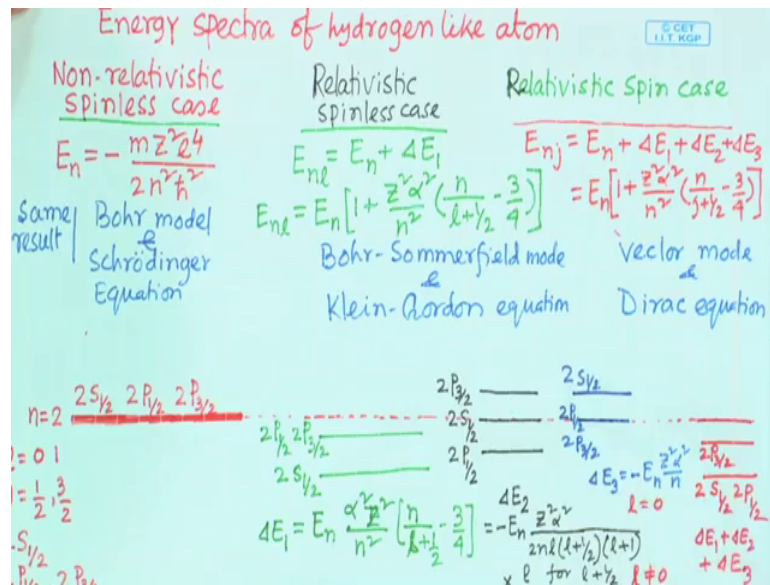 Energy spectra of hydrogen like atom
© CET
I.I.T. KGP
Non-relativistic
spinless case
E_n = - mz²e⁴ / 2n²ħ²
same result | Bohr model
&
Schrödinger
Equation
Relativistic
spinless case
E_nl = E_n + ΔE₁
E_nl = E_n [1 + z²α²/n² (n/(l+½) - 3/4)]
Bohr-Sommerfield mode
&
Klein-Gordon equation
Relativistic Spin case
E_nj = E_n + ΔE₁ + ΔE₂ + ΔE₃
= E_n [1 + z²α²/n² (n/(j+½) - 3/4)]
Vector mode
&
Dirac equation
n=2 2S½ 2P½ 2P3/2
= 0 1
= ½, 3/2
S½
P½ 2P3/2
2P½ 2P3/2
2S½
ΔE₁ = E_n α²z²/n² [n/(l+½) - 3/4]
2P3/2
2S½
2P½
ΔE₂
= -E_n z²α² / 2nl(l+½)(l+1)
x l for l+½ l≠0
2S½
2P½
2P3/2
ΔE₃ = -E_n z²α²/n
l=0
2P3/2
2S½ 2P½
ΔE₁+ΔE₂
+ΔE₃